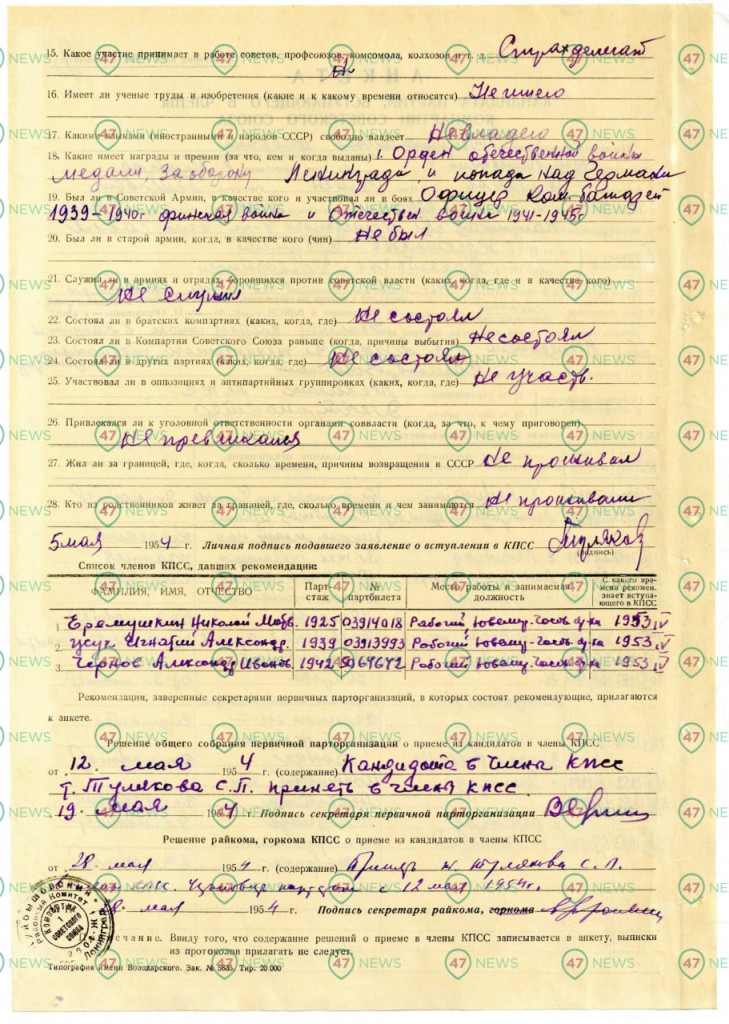 15. Какое участие принимает в работе советов, профсоюзов, комсомола, колхозов и т. д. Страхделегат
16. Имеет ли ученые труды и изобретения (какие и к какому времени относятся) Не имею
17. Какими языками (иностранными и народов СССР) свободно владеет Не владею
18. Какие имеет награды и премии (за что, кем и когда выданы) 1. Орден отечественной войны
медали, За оборону Ленинграда, и победа над Германи
19. Был ли в Советской Армии, в качестве кого и участвовал ли в боях Офицер Ком. батареи
1939-1940г финская война и Отечествен война 1941-1945г
20. Был ли в старой армии, когда, в качестве кого (чин) Не был
21. Служил ли в армиях и отрядах, боровшихся против советской власти (каких, когда, где и в качестве кого)
Не служил
22. Состоял ли в братских компартиях (каких, когда, где) Не состоял
23. Состоял ли в Компартии Советского Союза раньше (когда, причины выбытия) Не состоял
24. Состоял ли в других партиях (каких, когда, где) Не состоял
25. Участвовал ли в оппозициях и антипартийных группировках (каких, когда, где) Не участв.
26. Привлекался ли к уголовной ответственности органами соввласти (когда, за что, к чему приговорен)
Не превликался
27. Жил ли за границей, где, когда, сколько времени, причины возвращения в СССР Не проживал
28. Кто из родственников живет за границей, где, сколько времени и чем занимаются Не проживали
5 мая 1954 г. Личная подпись подавшего заявление о вступлении в КПСС Туляков
(подпись)
Список членов КПСС, давших рекомендации:
ФАМИЛИЯ, ИМЯ, ОТЧЕСТВО Партстаж № партбилета Место работы и занимаемая должность С какого времени рекомен. знает вступающего в КПСС
1. Еремушкин Николай Матв. 1925 03914018 Рабочий 1953 IV
2. Усук Игнатий Александр. 1939 03913993 Рабочий 1953 IV
3. Чернос Александр Иванов. 1942 Рабочий 1953 IV
Рекомендации, заверенные секретарями первичных парторганизаций, в которых состоят рекомендующие, прилагаются
к анкете.
Решение общего собрания первичной парторганизации о приеме из кандидатов в члены КПСС
от 12. мая 1954 г. (содержание) Кандидата в члена КПСС
т. Тулякова С.П. принять в члены КПСС.
19. мая 1954 г. Подпись секретаря первичной парторганизации
Решение райкома, горкома КПСС о приеме из кандидатов в члены КПСС
от 28. мая 1954 г. (содержание) Принять т. Тулякова С.П.
КПСС. с 12 мая 1954г.
28. мая 1954 г. Подпись секретаря райкома, горкома
Примечание. Ввиду того, что содержание решений о приеме в члены КПСС записывается в анкету, выписки
из протоколов прилагать не следует.
Типография имени Володарского. Зак. № 5885. Тир. 20 000
47 NEWS